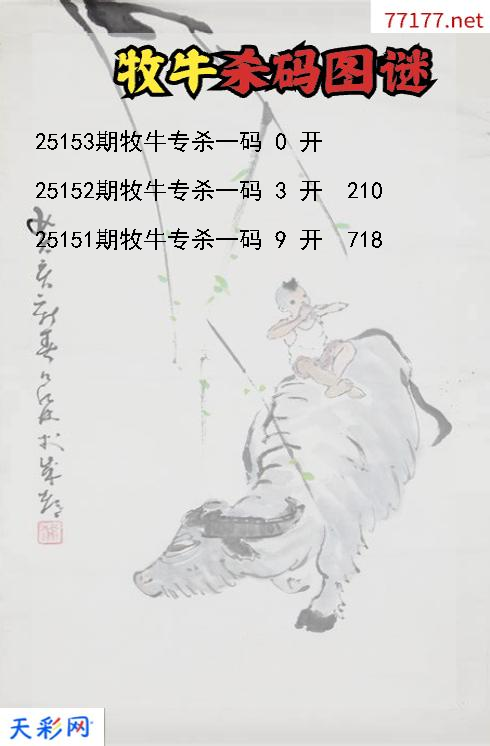 77177.net
牧牛杀码图谜
25153期牧牛专杀一码 0 开
25152期牧牛专杀一码 3 开 210
25151期牧牛专杀一码 9 开 718
天彩网